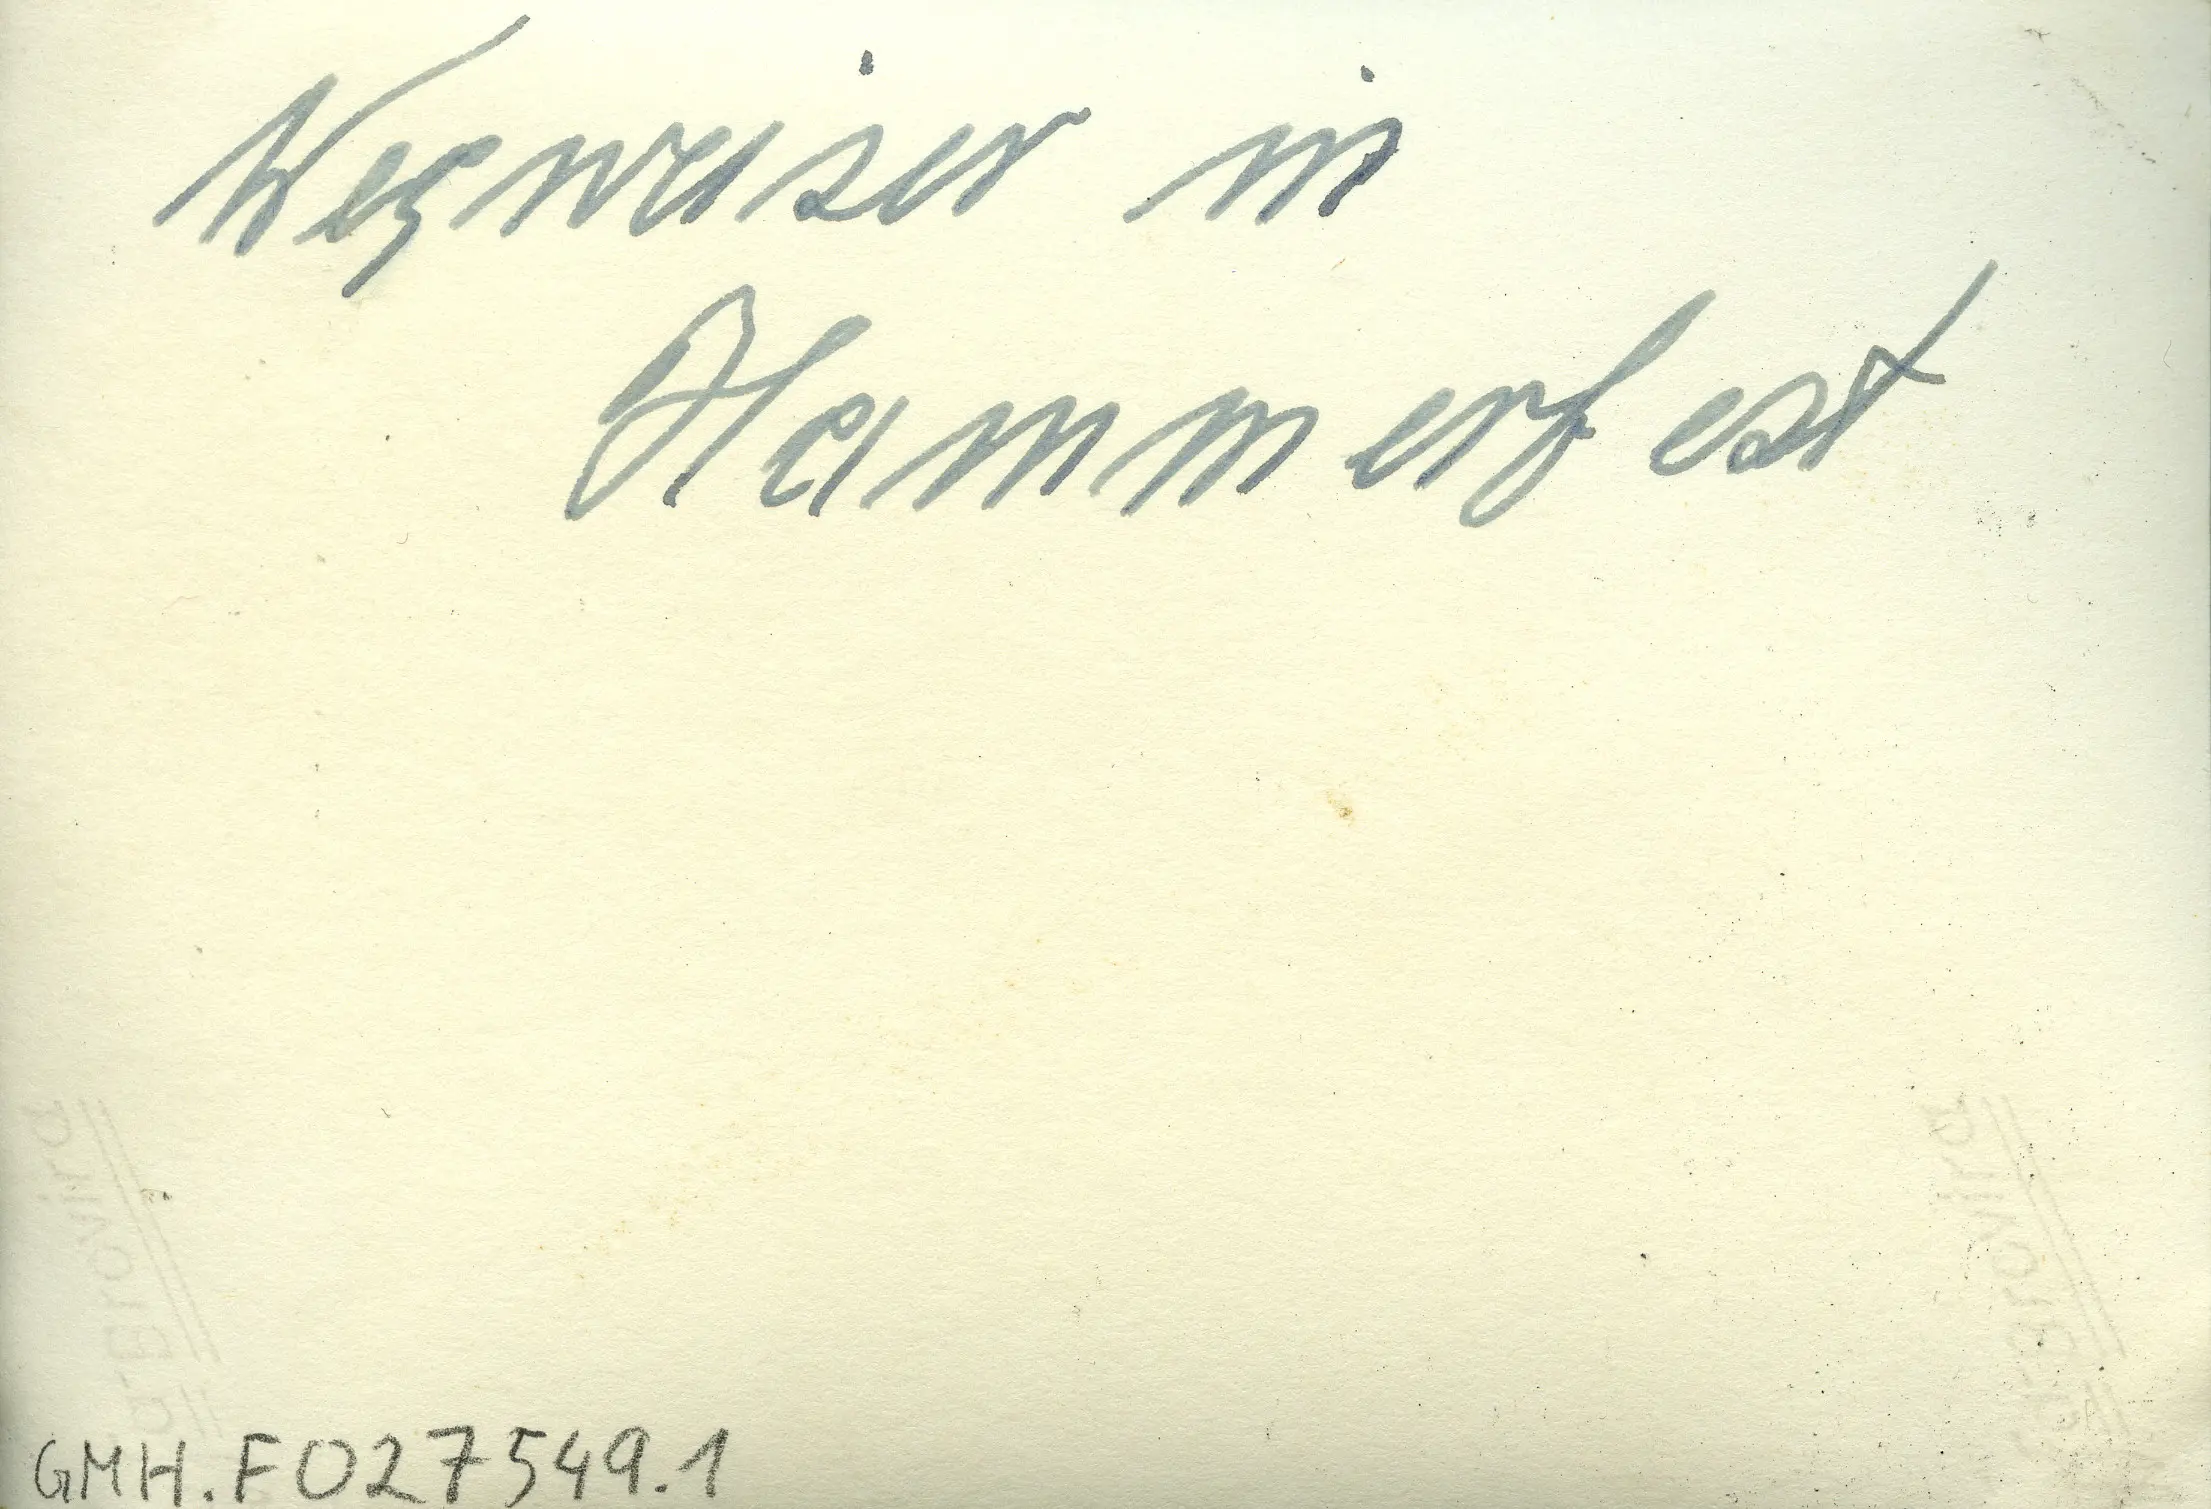 Wegweiser in
Hammerfest
GMH.F027549.1